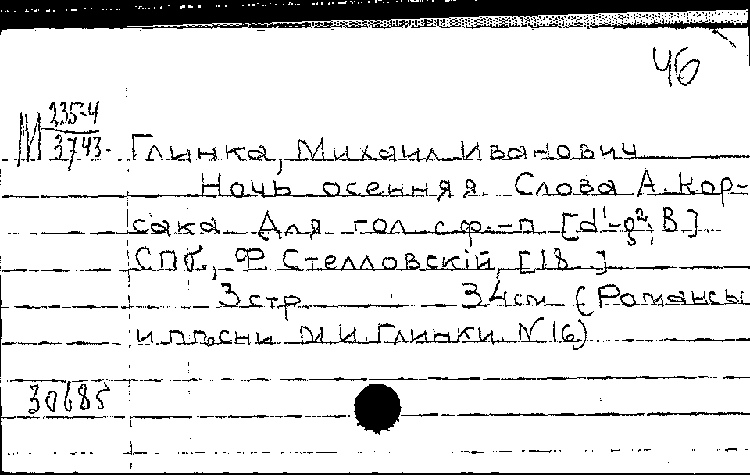 46
М 235-4
3743
Глинка, Михаил Иванович
Ночь осенняя. Слова А. Кор-
сака Для гол. с ф.-п [d¹-g², B]
СПб., Ф. Стелловскій, [18 ]
3 стр 34 см (Романсы
и пѣсни М И Глинки. N 16)
30685